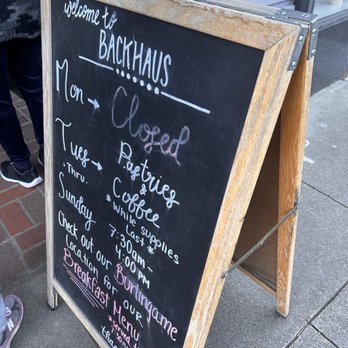 welcome to
BACKHAUS
Mon → Closed
Tues → Pastries
Thru. &
Sunday Coffee
*While supplies
Last*
7:30am -
4:00 pm
Check out our Burlingame
Location for our
Breakfast Menu